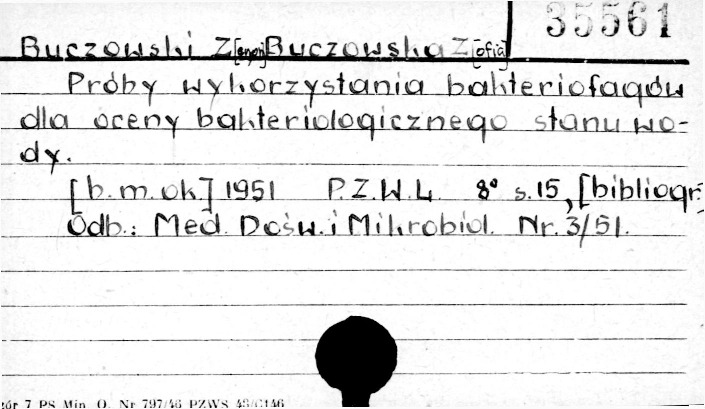 35561
Buczowski Z[enon] Buczowska Z[ofia]
Próby wykorzystania bakteriofagów
dla oceny bakteriologicznego stanu wo-
dy.
[b.m.ok.] 1951 P.Z.W.L. 8° s.15, [bibliogr.
Odb.: Med. Dośw. i Mikrobiol. Nr. 3/51.
zór 7 PS Min. O. Nr 797/46 PZWS